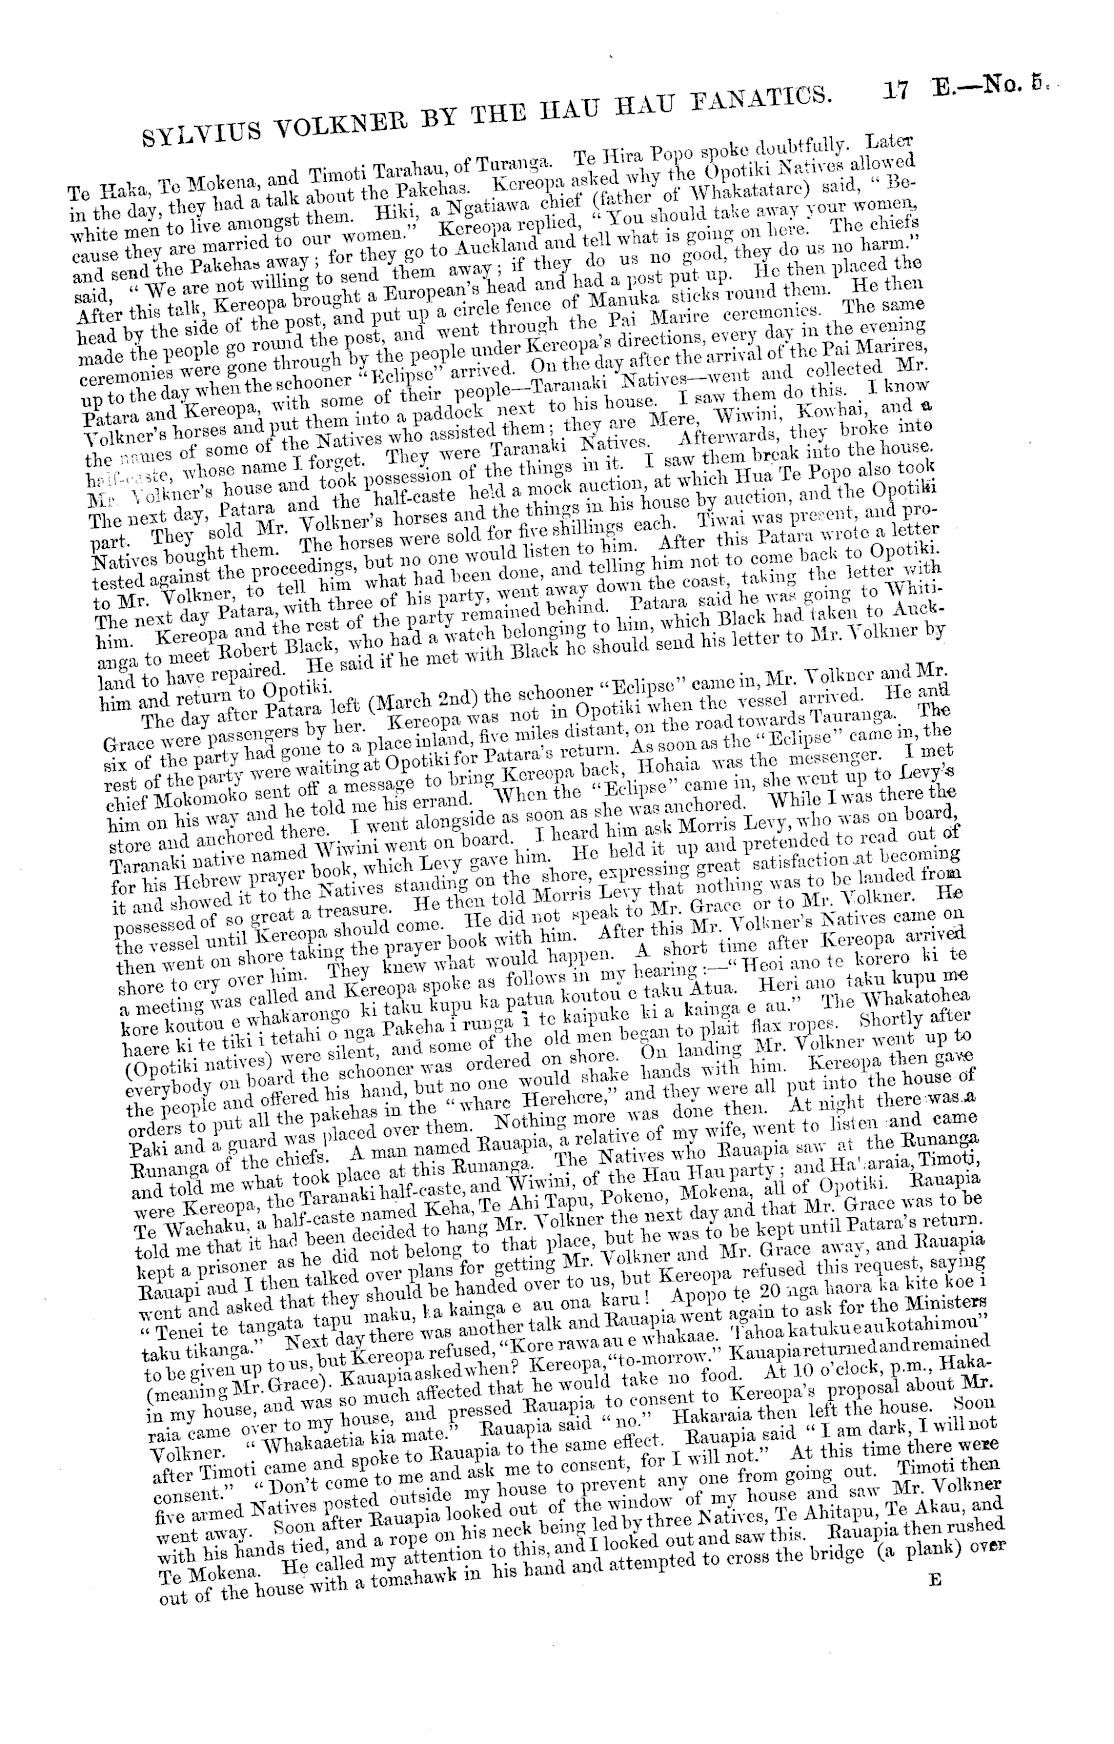 SYLVIUS VOLKNER BY THE HAU HAU FANATICS. 17 E.—No. 5.
Te Haka, Te Mokena, and Timoti Tarahau, of Turanga. Te Hira Popo spoke doubtfully. Later
in the day, they had a talk about the Pakehas. Kereopa asked why the Opotiki Natives allowed
white men to live amongst them. Hiki, a Ngatiawa chief (father of Whakatatare) said, "Be-
cause they are married to our women." Kereopa replied, "You should take away your women,
and send the Pakehas away; for they go to Auckland and tell what is going on here. The chiefs
said, "We are not willing to send them away; if they do us no good, they do us no harm."
After this talk, Kereopa brought a European's head and had a post put up. He then placed the
head by the side of the post, and put up a circle fence of Manuka sticks round them. He then
made the people go round the post, and went through the Pai Marire ceremonies. The same
ceremonies were gone through by the people under Kereopa's directions, every day in the evening
up to the day when the schooner "Eclipse" arrived. On the day after the arrival of the Pai Marires,
Patara and Kereopa, with some of their people—Taranaki Natives—went and collected Mr.
Volkner's horses and put them into a paddock next to his house. I saw them do this. I know
the names of some of the Natives who assisted them; they are Mere, Wiwini, Kowhai, and a
half-caste, whose name I forget. They were Taranaki Natives. Afterwards, they broke into
Mr. Volkner's house and took possession of the things in it. I saw them break into the house.
The next day, Patara and the half-caste held a mock auction, at which Hua Te Popo also took
part. They sold Mr. Volkner's horses and the things in his house by auction, and the Opotiki
Natives bought them. The horses were sold for five shillings each. Tiwai was present, and pro-
tested against the proceedings, but no one would listen to him. After this Patara wrote a letter
to Mr. Volkner, to tell him what had been done, and telling him not to come back to Opotiki.
The next day Patara, with three of his party, went away down the coast, taking the letter with
him. Kereopa and the rest of the party remained behind. Patara said he was going to Whiti-
anga to meet Robert Black, who had a watch belonging to him, which Black had taken to Auck-
land to have repaired. He said if he met with Black he should send his letter to Mr. Volkner by
him and return to Opotiki.
The day after Patara left (March 2nd) the schooner "Eclipse" came in, Mr. Volkner and Mr.
Grace were passengers by her. Kereopa was not in Opotiki when the vessel arrived. He and
six of the party had gone to a place inland, five miles distant, on the road towards Tauranga. The
rest of the party were waiting at Opotiki for Patara's return. As soon as the "Eclipse" came in, the
chief Mokomoko sent off a message to bring Kereopa back, Hohaia was the messenger. I met
him on his way and he told me his errand. When the "Eclipse" came in, she went up to Levy's
store and anchored there. I went alongside as soon as she was anchored. While I was there the
Taranaki native named Wiwini went on board. I heard him ask Morris Levy, who was on board,
for his Hebrew prayer book, which Levy gave him. He held it up and pretended to read out of
it and showed it to the Natives standing on the shore, expressing great satisfaction at becoming
possessed of so great a treasure. He then told Morris Levy that nothing was to be landed from
the vessel until Kereopa should come. He did not speak to Mr. Grace or to Mr. Volkner. He
then went on shore taking the prayer book with him. After this Mr. Volkner's Natives came on
shore to cry over him. They knew what would happen. A short time after Kereopa arrived
a meeting was called and Kereopa spoke as follows in my hearing:—"Heoi ano te korero ki te
kore koutou e whakarongo ki taku kupu ka patua koutou e taku Atua. Heri ano taku kupu me
haere ki te tiki i tetahi o nga Pakeha i runga i te kaipuke ki a kainga e au." The Whakatohea
(Opotiki natives) were silent, and some of the old men began to plait flax ropes. Shortly after
everybody on board the schooner was ordered on shore. On landing Mr. Volkner went up to
the people and offered his hand, but no one would shake hands with him. Kereopa then gave
orders to put all the pakehas in the "whare Herehere," and they were all put into the house of
Paki and a guard was placed over them. Nothing more was done then. At night there was a
Runanga of the chiefs. A man named Rauapia, a relative of my wife, went to listen and came
and told me what took place at this Runanga. The Natives who Rauapia saw at the Runanga
were Kereopa, the Taranaki half-caste, and Wiwini, of the Hau Hau party; and Ha'araia, Timoti,
Te Waehaku, a half-caste named Keha, Te Ahi Tapu, Pokeno, Mokena, all of Opotiki. Rauapia
told me that it had been decided to hang Mr. Volkner the next day and that Mr. Grace was to be
kept a prisoner as he did not belong to that place, but he was to be kept until Patara's return.
Rauapi and I then talked over plans for getting Mr. Volkner and Mr. Grace away, and Rauapia
went and asked that they should be handed over to us, but Kereopa refused this request, saying
"Tenei te tangata tapu maku, ka kainga e au ona karu! Apopo te 20 nga haora ka kite koe i
taku tikanga." Next day there was another talk and Rauapia went again to ask for the Ministers
to be given up to us, but Kereopa refused, "Kore rawa au e whakaae. Tahoa ka tukue au kotahi mou"
(meaning Mr. Grace). Kauapia asked when? Kereopa, "to-morrow." Kauapia returned and remained
in my house, and was so much affected that he would take no food. At 10 o'clock, p.m., Haka-
raia came over to my house, and pressed Rauapia to consent to Kereopa's proposal about Mr.
Volkner. "Whakaaetia kia mate." Rauapia said "no." Hakaraia then left the house. Soon
after Timoti came and spoke to Rauapia to the same effect. Rauapia said "I am dark, I will not
consent." "Don't come to me and ask me to consent, for I will not." At this time there were
five armed Natives posted outside my house to prevent any one from going out. Timoti then
went away. Soon after Rauapia looked out of the window of my house and saw Mr. Volkner
with his hands tied, and a rope on his neck being led by three Natives, Te Ahitapu, Te Akau, and
Te Mokena. He called my attention to this, and I looked out and saw this. Rauapia then rushed
out of the house with a tomahawk in his hand and attempted to cross the bridge (a plank) over
E